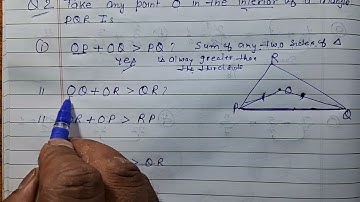 Q 2 Take any point O in the interior of a triangle
PQR Is
(i) OP + OQ > PQ? Sum of any two sides of Δ
Yes is alway greater than
the third side
R
O
P
Q
11 OQ + OR > QR?
11 OR + OP > RP
> QR